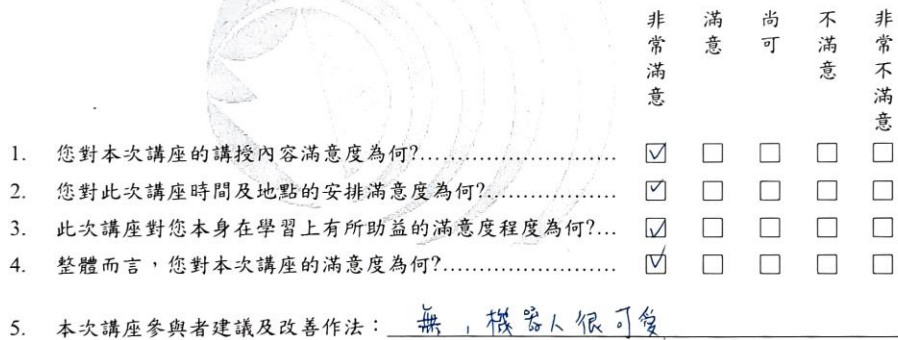 非常滿意 滿意 尚可 不滿意 非常不滿意
1. 您對本次講座的講授內容滿意度為何?............................ ☑ □ □ □ □
2. 您對此次講座時間及地點的安排滿意度為何?................... ☑ □ □ □ □
3. 此次講座對您本身在學習上有所助益的滿意度程度為何?... ☑ □ □ □ □
4. 整體而言,您對本次講座的滿意度為何?......................... ☑ □ □ □ □
5. 本次講座參與者建議及改善作法:無,機器人很可愛